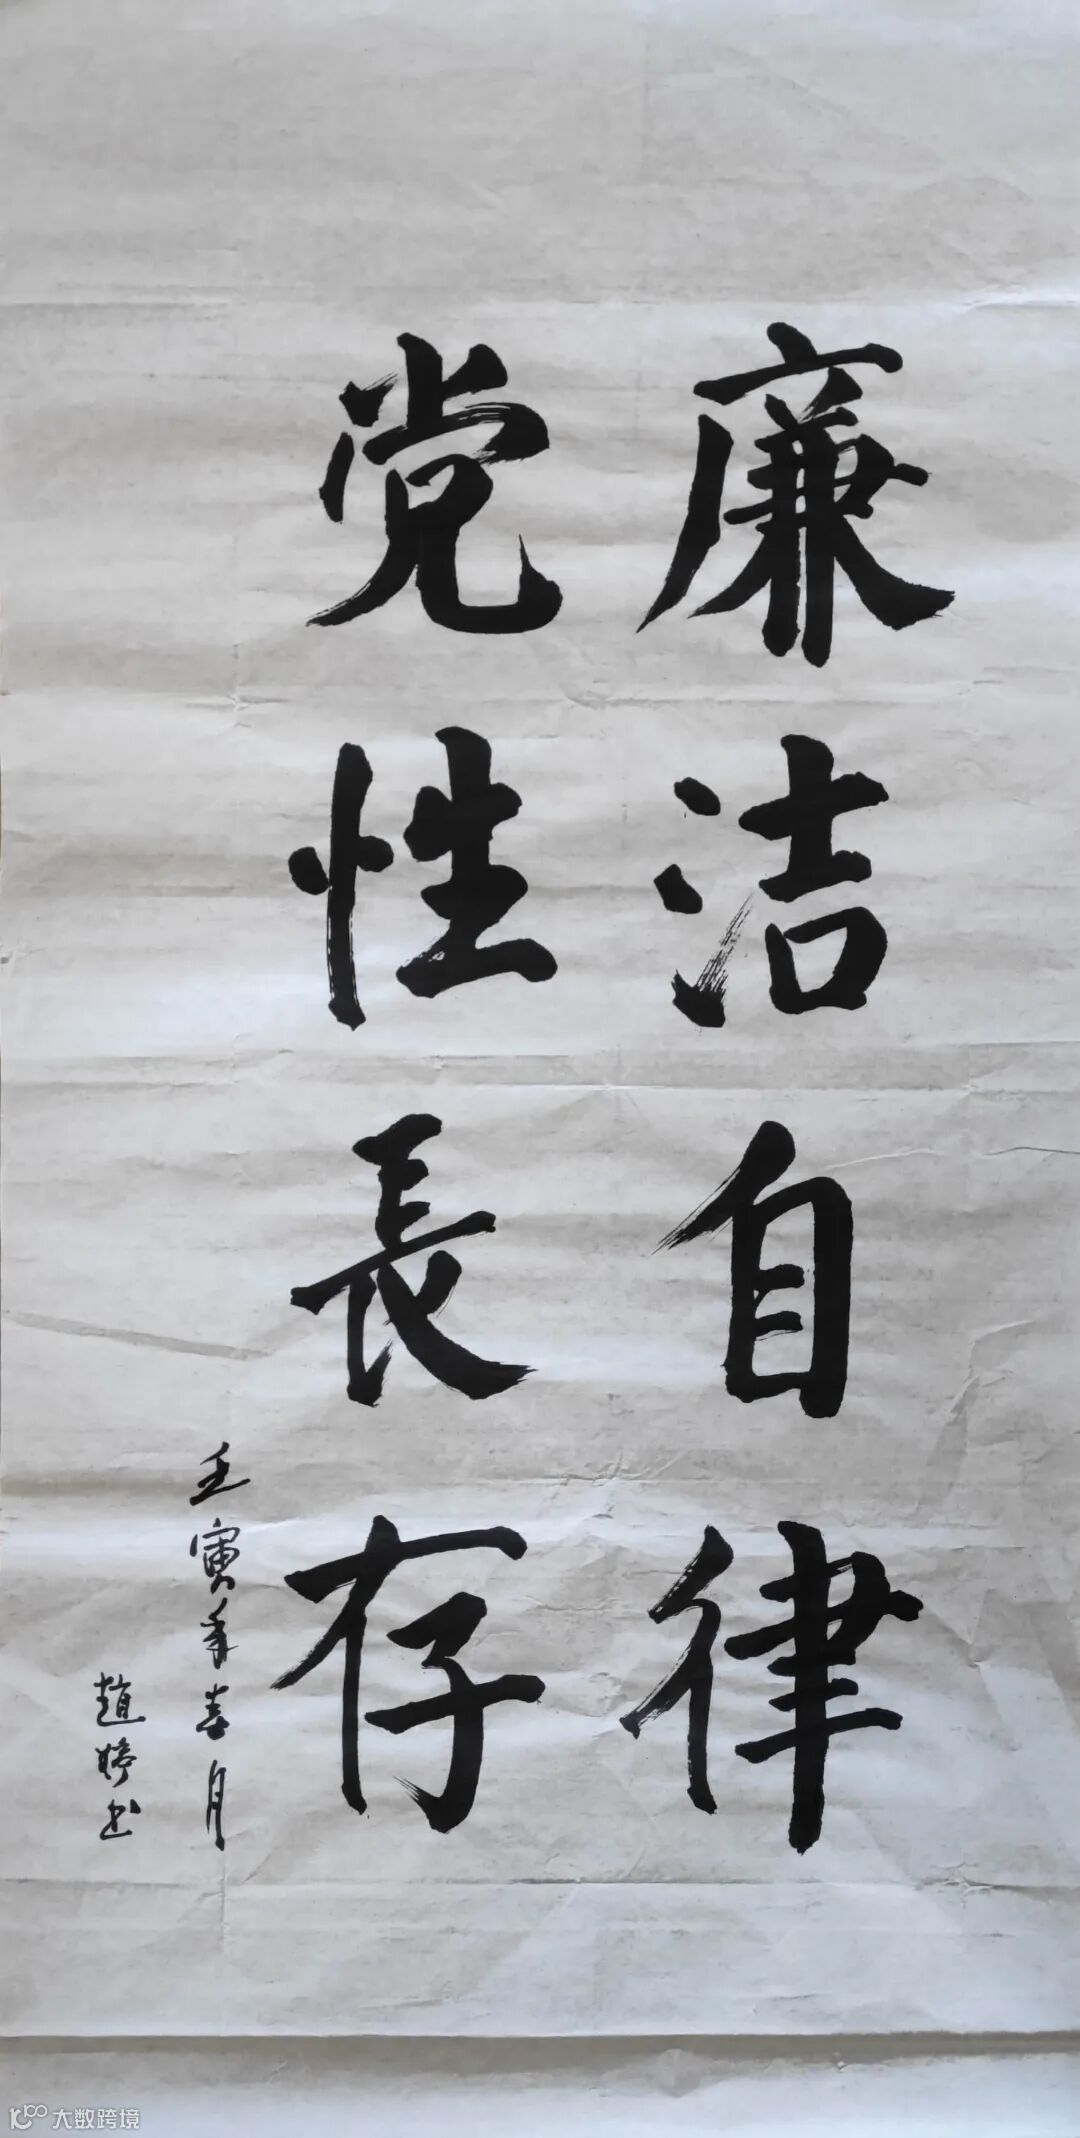 廉洁自律
党性長存
壬寅年春月
趙婷书
大数跨境